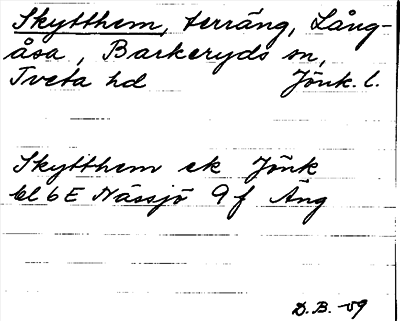 Skytthem, terräng, Lång-
åsa, Barkeryds sn,
Tveta hd Jönk. l.
Skytthem ek Jönk
bl 6E Nässjö 9f Äng
D.B. -59